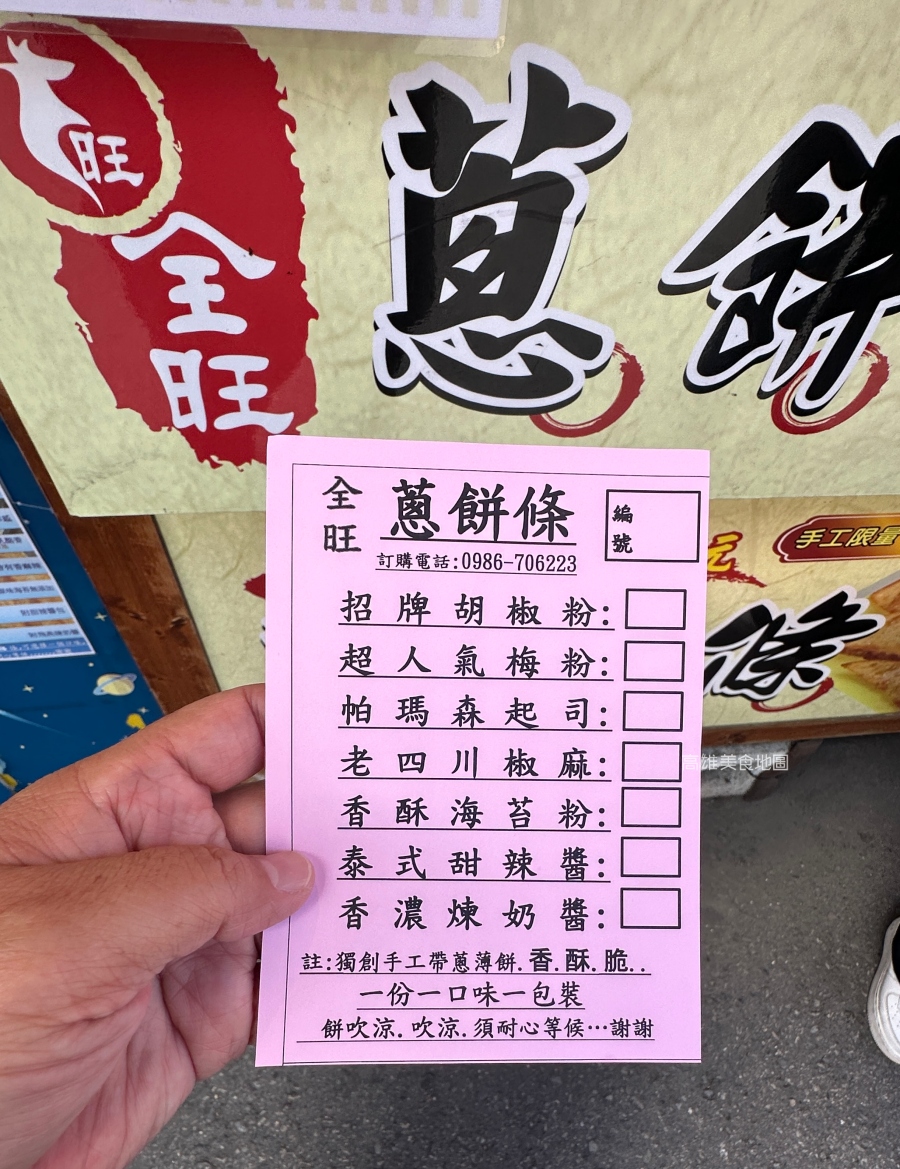 旺
全旺
蔥餅
手工限量
條
全旺
蔥餅條
編號
訂購電話:0986-706223
招牌胡椒粉:
超人氣梅粉:
帕瑪森起司:
老四川椒麻:
香酥海苔粉:
泰式甜辣醬:
香濃煉奶醬:
註:獨創手工帶蔥薄餅.香.酥.脆..
一份一口味一包裝
餅吹涼.吹涼.須耐心等候…謝謝
高雄美食地圖